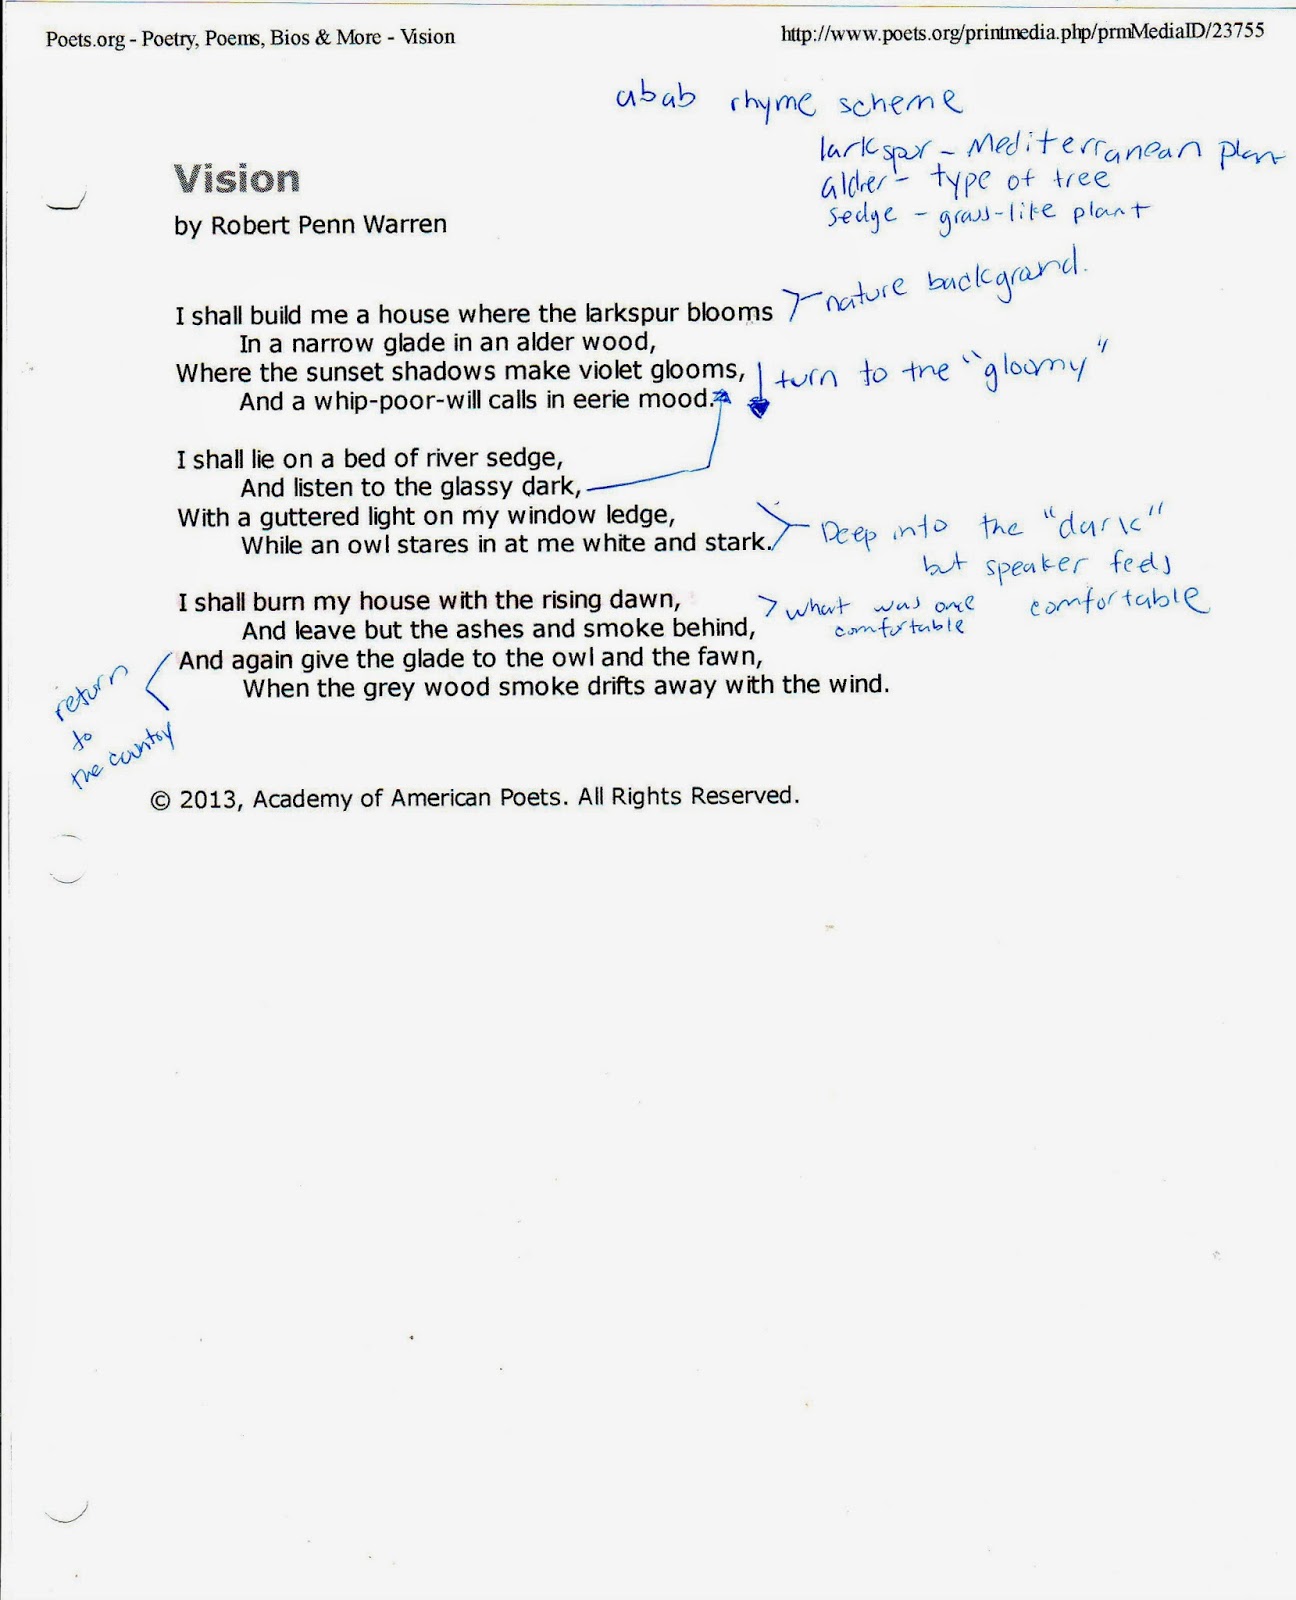 Poets.org - Poetry, Poems, Bios & More - Vision
http://www.poets.org/printmedia.php/prmMediaID/23755
abab rhyme scheme
larkspur - Mediterranean plant
alder - type of tree
sedge - grass-like plant
Vision
by Robert Penn Warren
nature background.
I shall build me a house where the larkspur blooms
In a narrow glade in an alder wood,
Where the sunset shadows make violet glooms,
turn to the "gloomy"
And a whip-poor-will calls in eerie mood.
I shall lie on a bed of river sedge,
And listen to the glassy dark,
With a guttered light on my window ledge,
While an owl stares in at me white and stark.
Deep into the "dark"
but speaker feels
comfortable
I shall burn my house with the rising dawn,
what was once
comfortable
And leave but the ashes and smoke behind,
And again give the glade to the owl and the fawn,
When the grey wood smoke drifts away with the wind.
return
to
the country
© 2013, Academy of American Poets. All Rights Reserved.